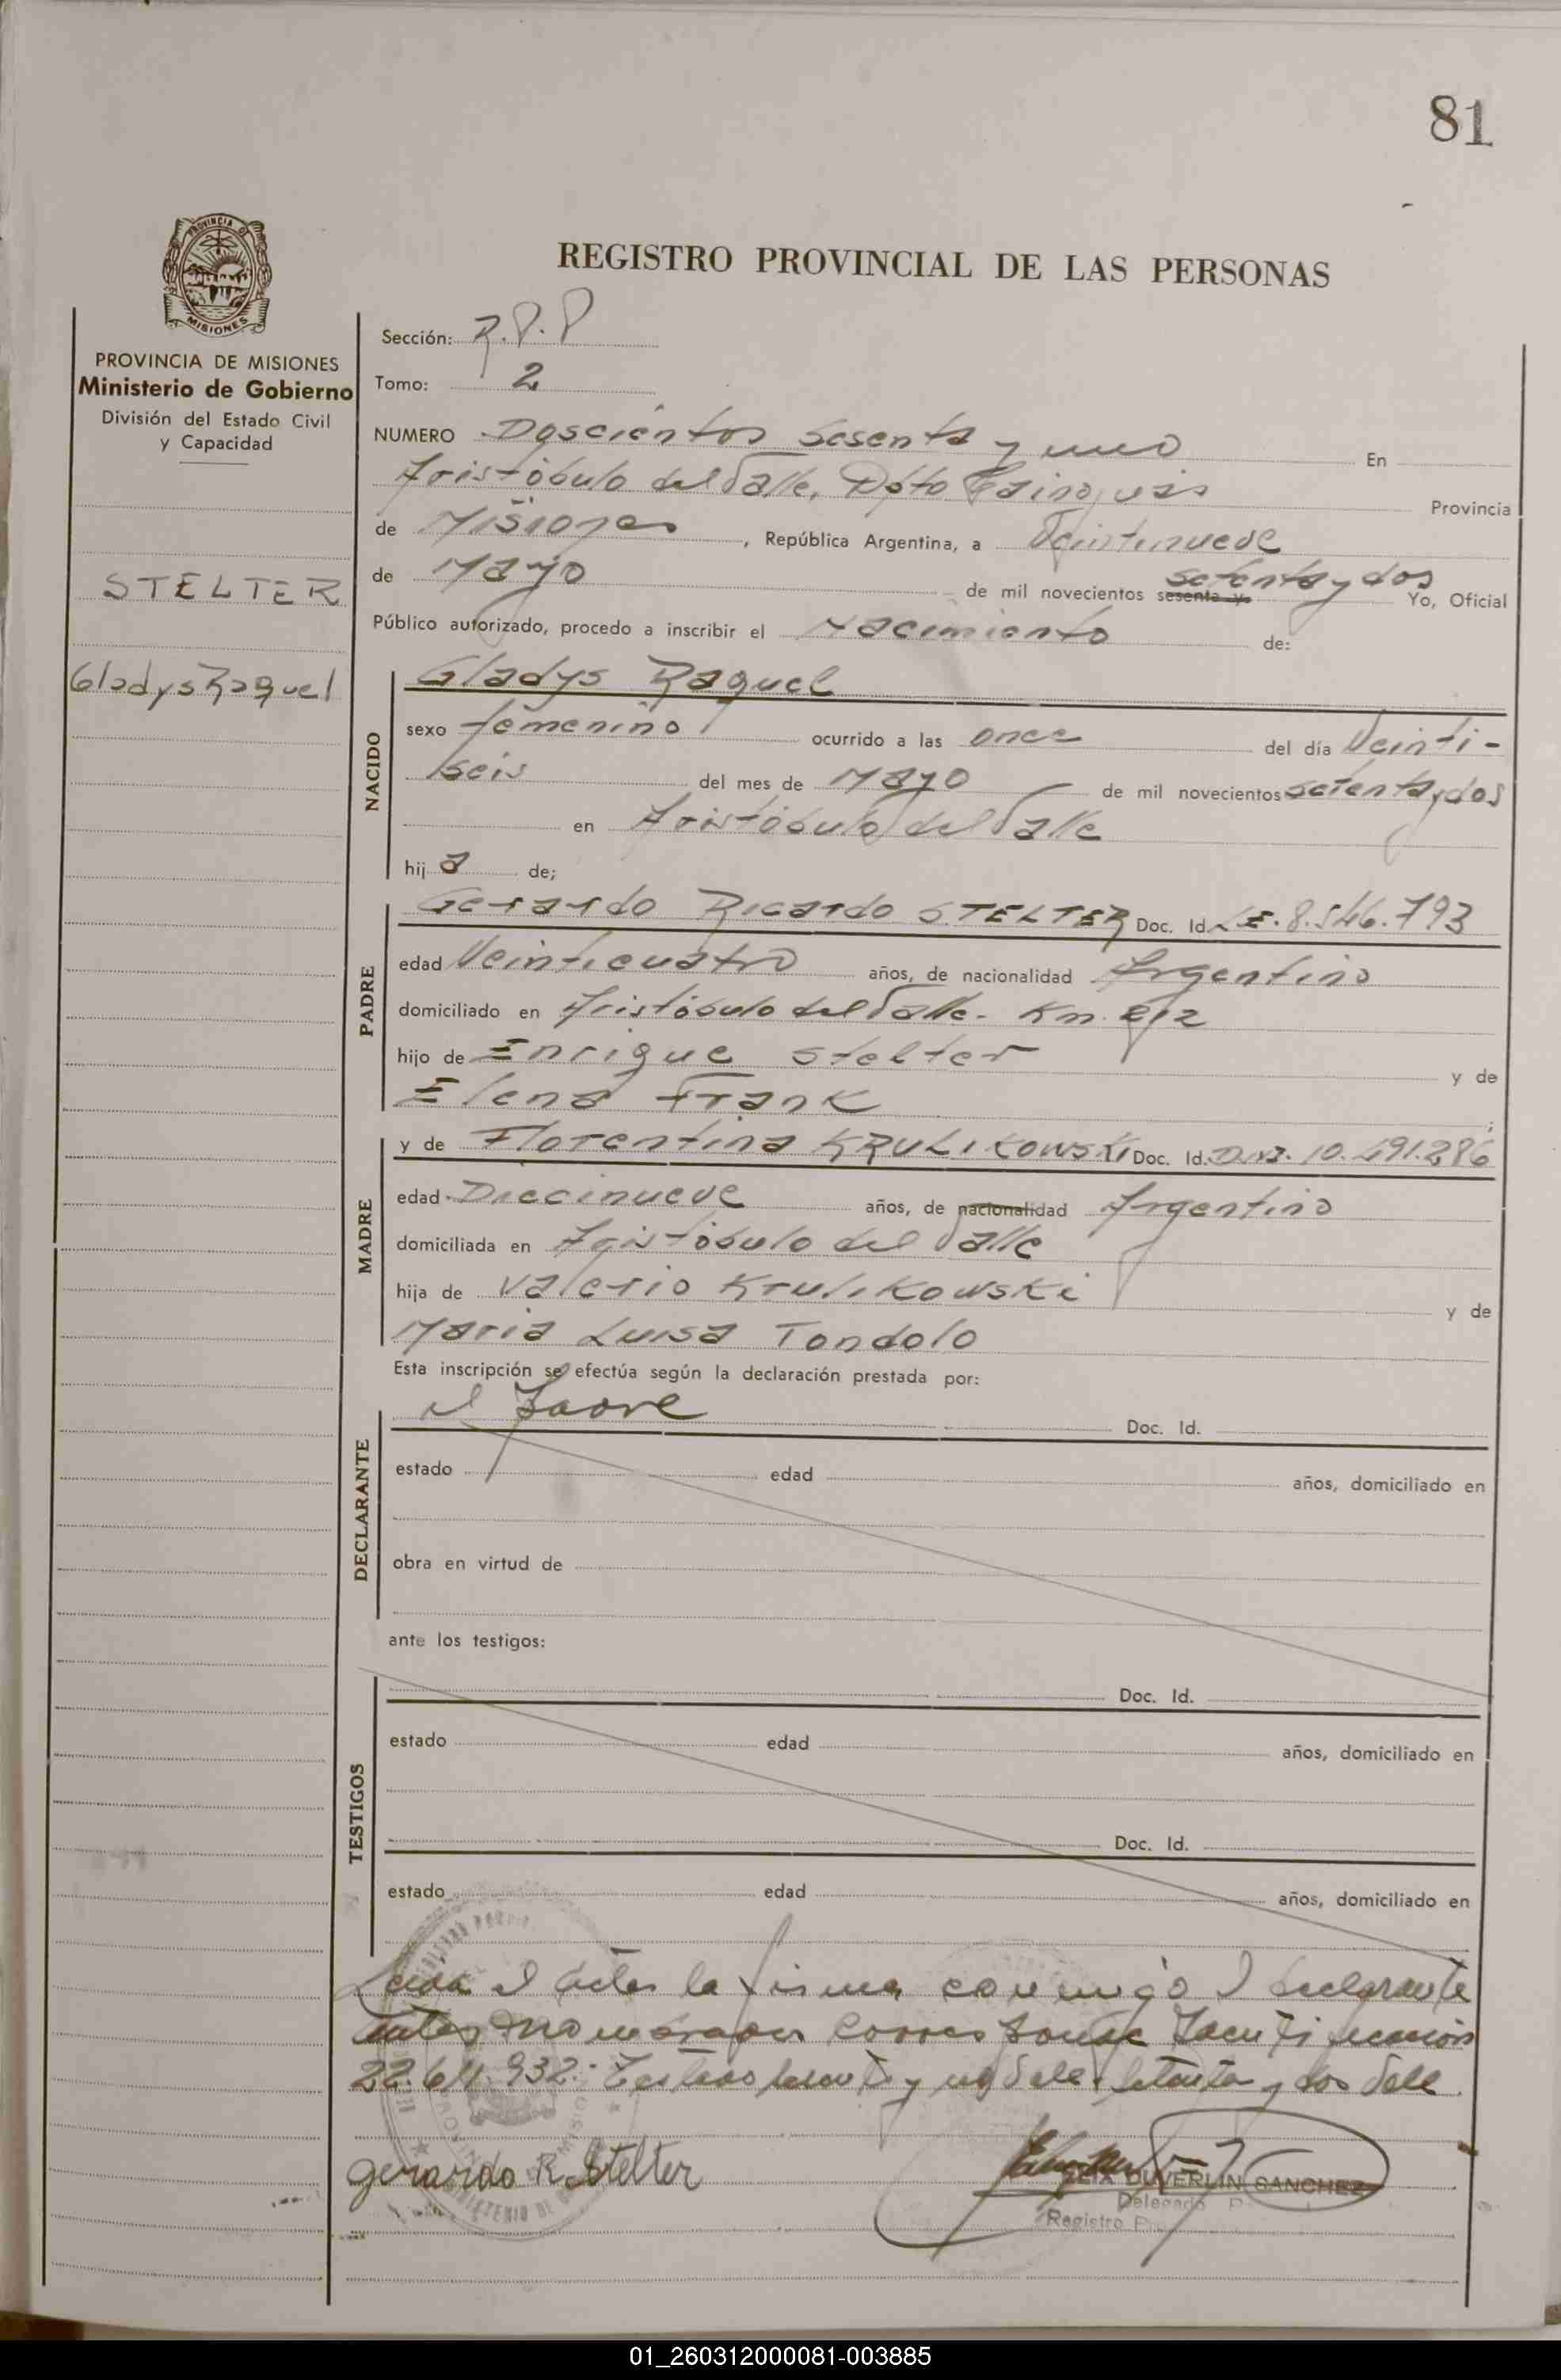 81
PROVINCIA DE
MISIONES
REGISTRO PROVINCIAL DE LAS PERSONAS
PROVINCIA DE MISIONES
Ministerio de Gobierno
División del Estado Civil
y Capacidad
STELTER
Gladys Raquel
Sección: R.P.P
Tomo: 2
NUMERO Doscientos sesenta y uno En
Aristóbulo del Valle, Dpto Cainguas Provincia
de Misiones, República Argentina, a Veintinueve
de Mayo de mil novecientos sesenta y setenta y dos Yo, Oficial
Público autorizado, procedo a inscribir el Nacimiento de:
NACIDO
Gladys Raquel
sexo femenino ocurrido a las once del día Veinti-
seis del mes de Mayo de mil novecientos setenta y dos
en Aristóbulo del Valle
hij a de;
PADRE
Gerardo Ricardo STELTER Doc. Id. L.E. 8.546.793
edad Veinticuatro años, de nacionalidad Argentino
domiciliado en Aristóbulo del Valle - Km. 212
hijo de Enrique Stelter y de
Elena Frank ;
MADRE
y de Florentina KRULIKOWSKI Doc. Id. D.N.I. 10.491.286
edad Diecinueve años, de nacionalidad Argentino
domiciliada en Aristóbulo del Valle
hija de Valerio Krulikowski y de
Maria Luisa Tondolo
Esta inscripción se efectúa según la declaración prestada por:
DECLARANTE
el Padre Doc. Id.
estado edad años, domiciliado en
obra en virtud de
ante los testigos:
TESTIGOS
Doc. Id.
estado edad años, domiciliado en
Doc. Id.
estado edad años, domiciliado en
el acta la firma conmigo el declarante
antes corresponde
22.611.932: Testado sesenta y no Vale. setenta y dos Vale
gerardo R. Stelter
FELIX DUVERLIN SANCHEZ
Delegado
Registro P
01_260312000081-003885